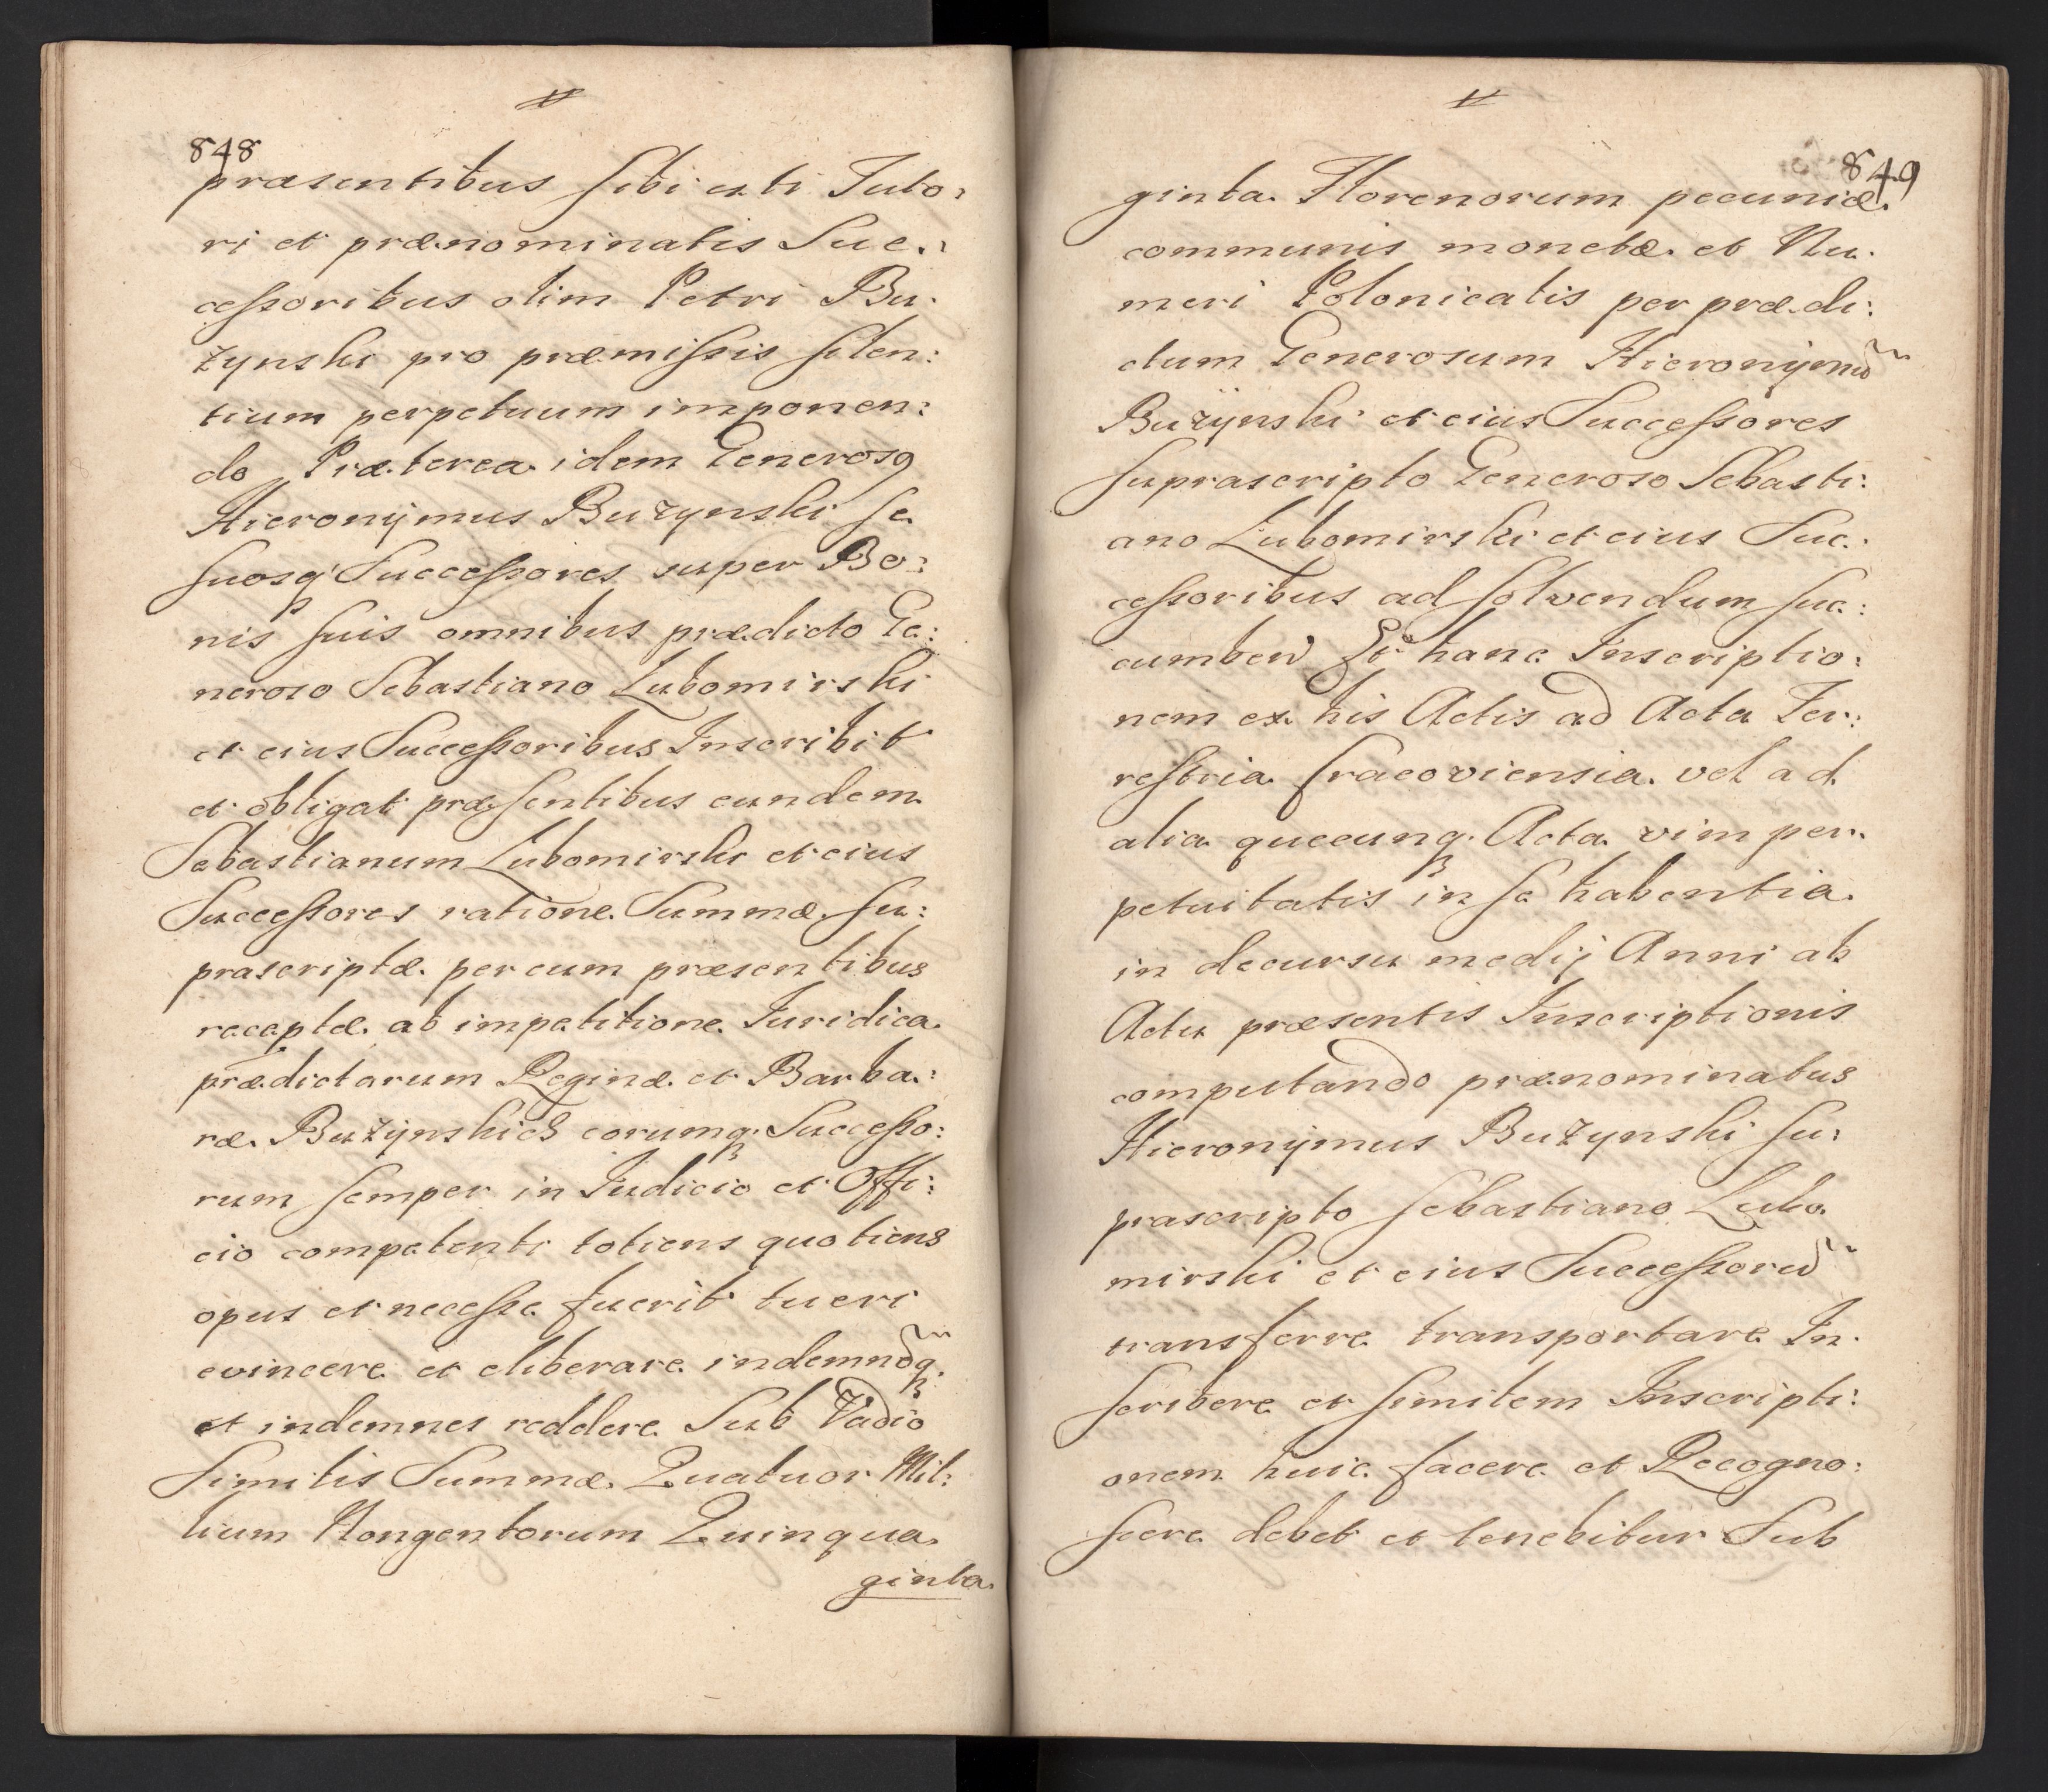 848
præsentibus sibi uti Tuto:
ri et prænominatis Suc:
cessoribus olim Petri Bu:
żynski pro præmissis silen:
tium perpetuum imponen:
do Præterea idem Generosꝯ
Hieronÿmus Buzynski se
suosq Successores super Bo:
nis suis omnibus prædicto Ge:
neroso Sebastiano Lubomirski
et eius Successoribus Inscribit
et obligat præsentibus eundem
Sebastianum Lubomirski et eius
Successores ratione Summæ su:
prascriptæ per eum præsentibus
receptæ ab impetitione Iuridica
prædictarum Reginæ et Barba:
ræ Bużÿnskich eorumq Successo:
rum semper in Iudicio et Offi:
cio competenti totiens quotiens
opus et necesse fuerit tueri
evincere et eliberare indemnẽq
et indemnes reddere Sub Vadio
Similis Summæ Quatuor Mil:
lium Nongentorum Quinqua
ginta
849
ginta Florenorum pecuniæ
communis monetæ et Nu.
meri Polonicalis per prædi:
ctum Generosum Hieronÿmũ
Bużÿnski et eius Successores
suprascripto Generoso Sebasti:
ano Lubomirski et eius Suc:
cessoribus ad solvendum suc:
cumben Et hanc Inscriptio:
nem ex his Actis ad Acta Ter:
restria Cracoviensia vel ad
alia quecunq Acta vim per.
petuitatis in se habentia
in decursu medij Anni ab
Actu præsentis Inscriptionis
computando prænominatus
Hieronÿmus Bużynski su:
prascripto Sebastiano Lubo
mirski et eius Successorib
transferre transportare In.
scribere et similem Inscripti:
onem huic facere et Recogno:
scere debet et tenebitur Sub